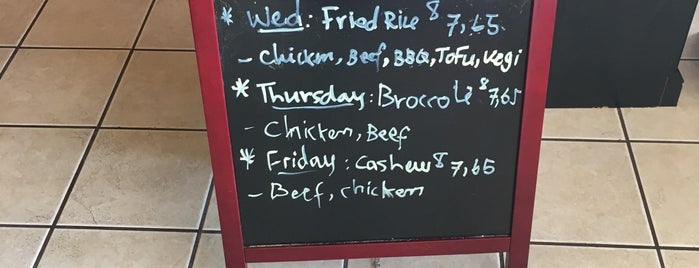 * Wed: Fried Rice $7,65
- Chicken, Beef, BBQ, Tofu, Vegi
* Thursday: Broccole $7,65
- Chicken, Beef
* Friday: Cashew $7,65
- Beef, chicken